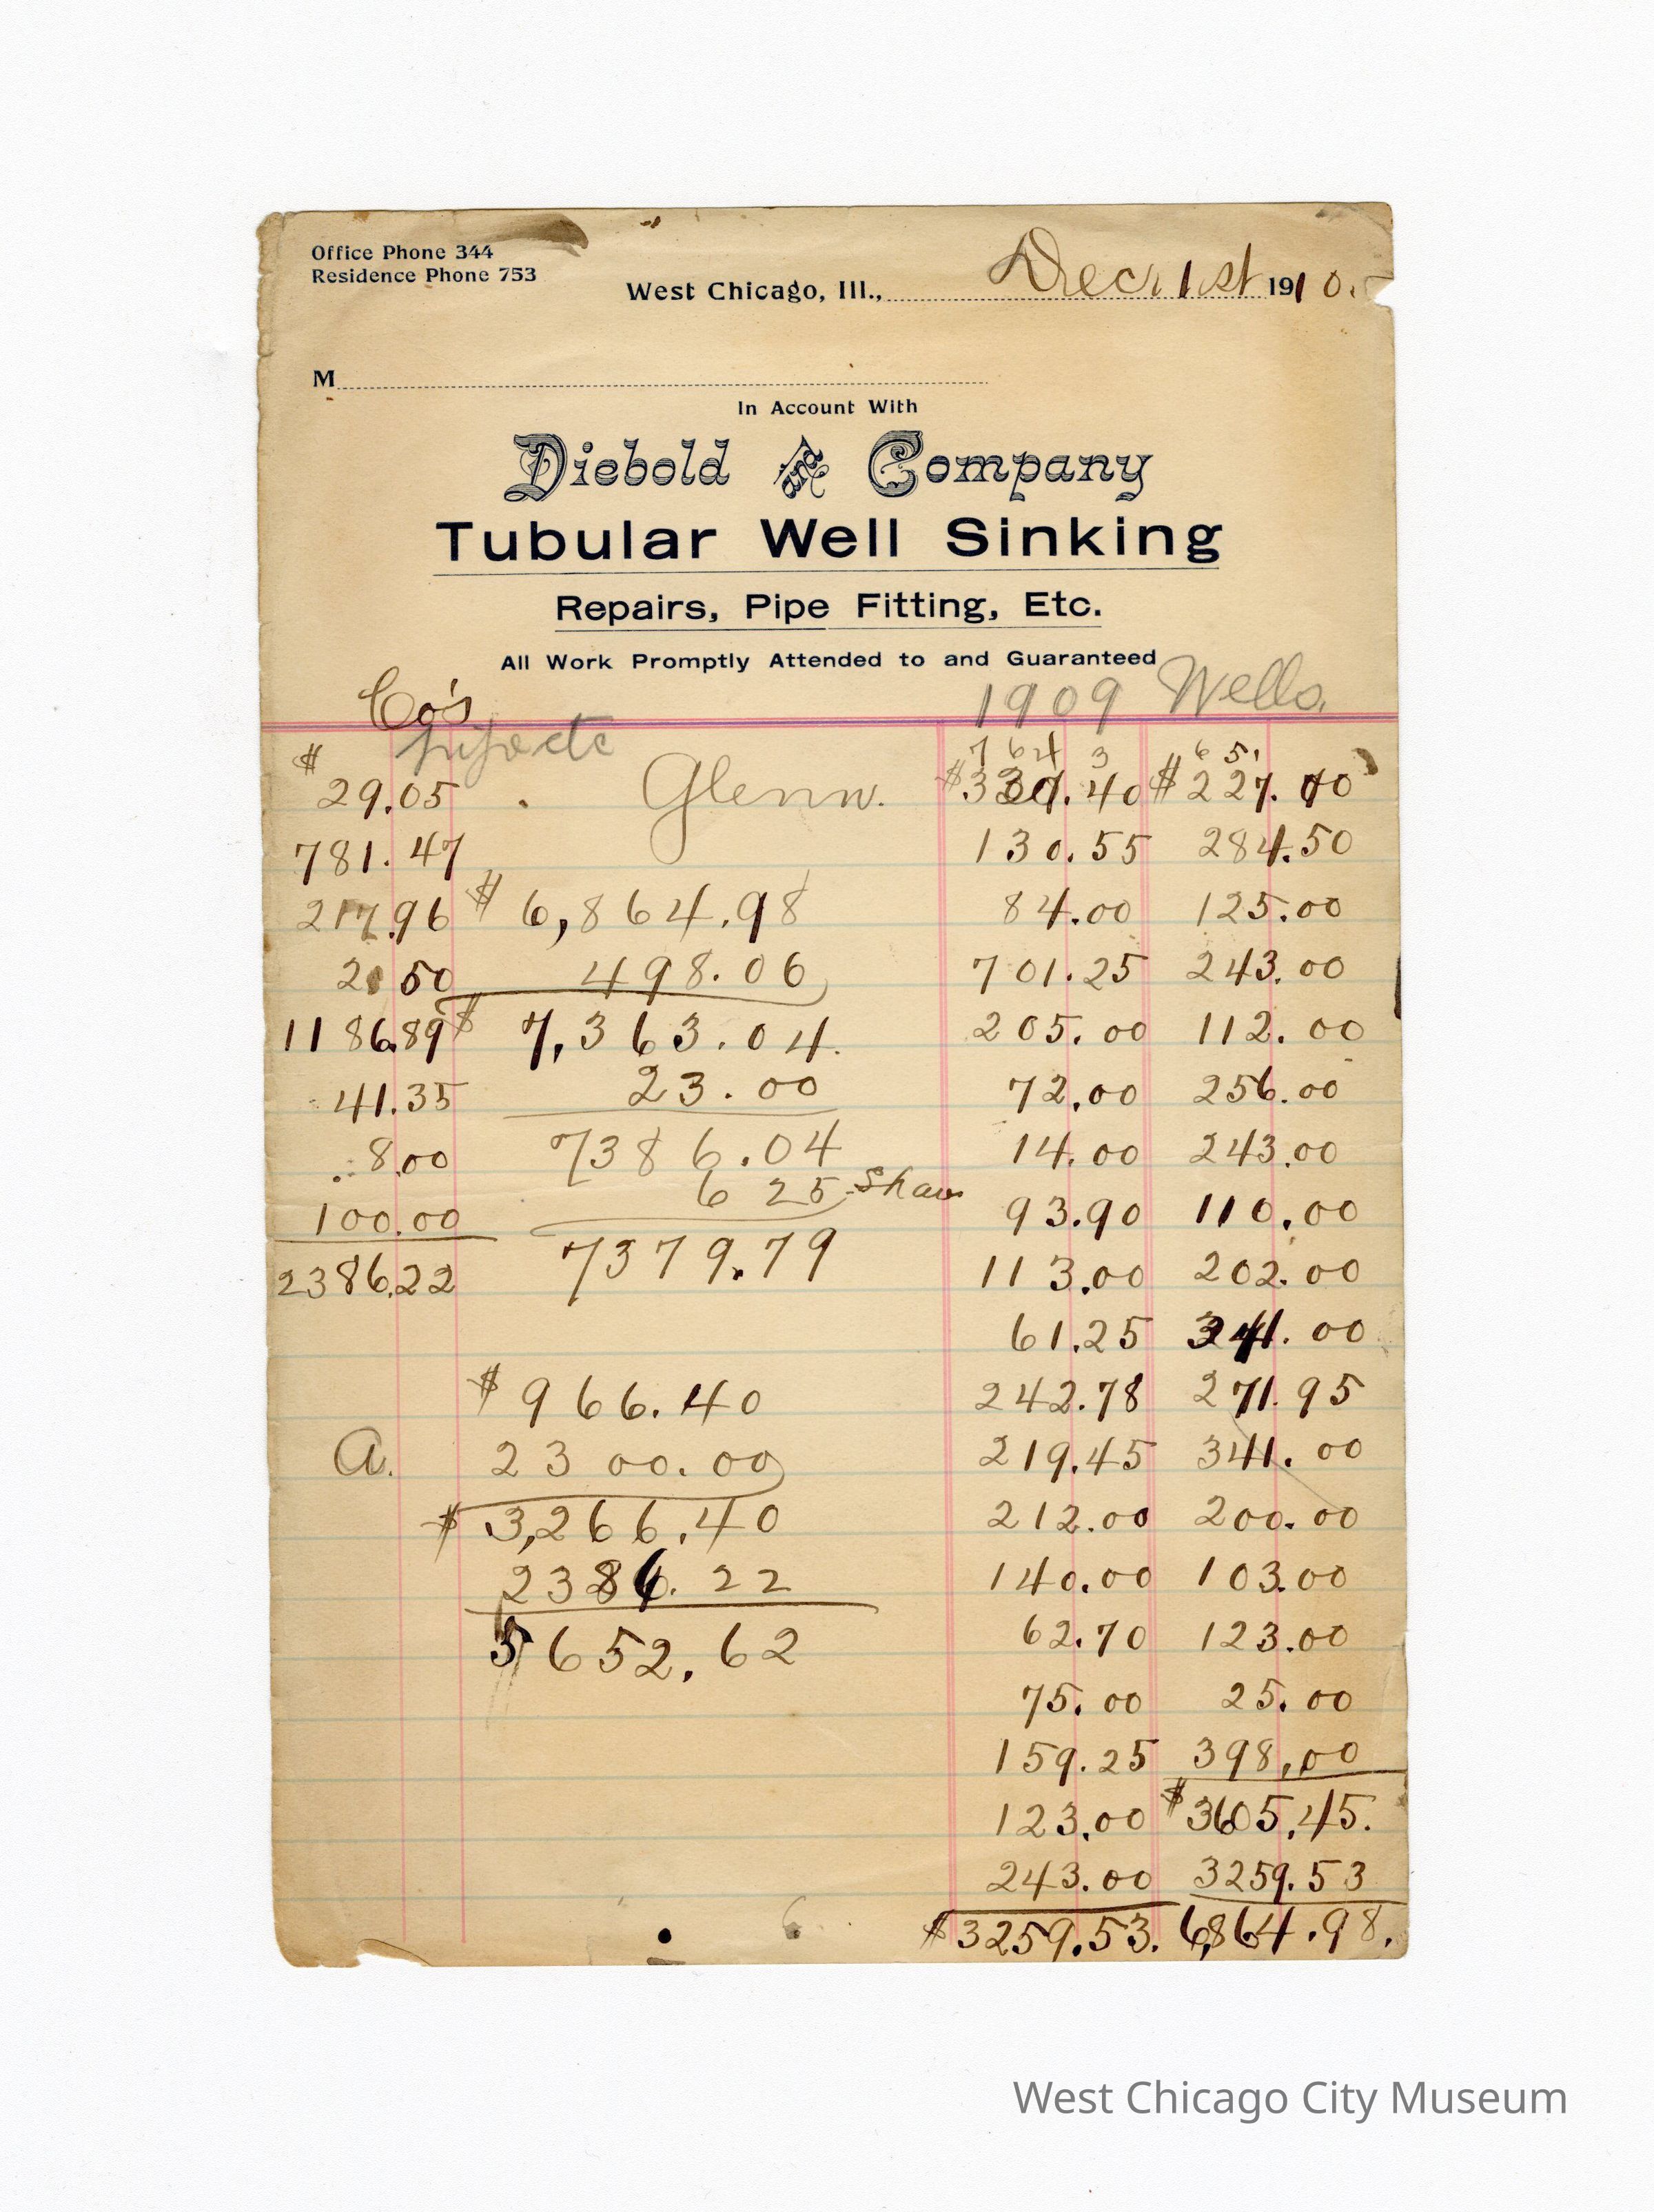 Office Phone 344
Residence Phone 753
West Chicago, Ill., Dec. 1st 1910.
M
In Account With
Diebold and Company
Tubular Well Sinking
Repairs, Pipe Fitting, Etc.
All Work Promptly Attended to and Guaranteed
Co's 1909 Wells.
7 64 3 6 5.
$ 29.05 Glenn. $ .40 $ 227.
781.47 130.55 284.50
217.96 $ 6,864.98 84.00 125.00
50 498.06 701.25 243.00
1186.89 $ 7,363.04. 205.00 112.00
41.35 23.00 72.00 256.00
8.00 7386.04 14.00 243.00
6 25 Shaw
100.00 93.90 110.00
2386.22 7379.79 113.00 202.00
61.25 341.00
$ 966.40 242.78 271.95
a. 2300.00 219.45 341.00
$ 3,266.40 212.00 200.00
2386.22 140.00 103.00
5652.62 62.70 123.00
75.00 25.00
159.25 398.00
123.00 $ 3605.45.
243.00 3259.53
$ 3259.53. 6,864.98.
West Chicago City Museum